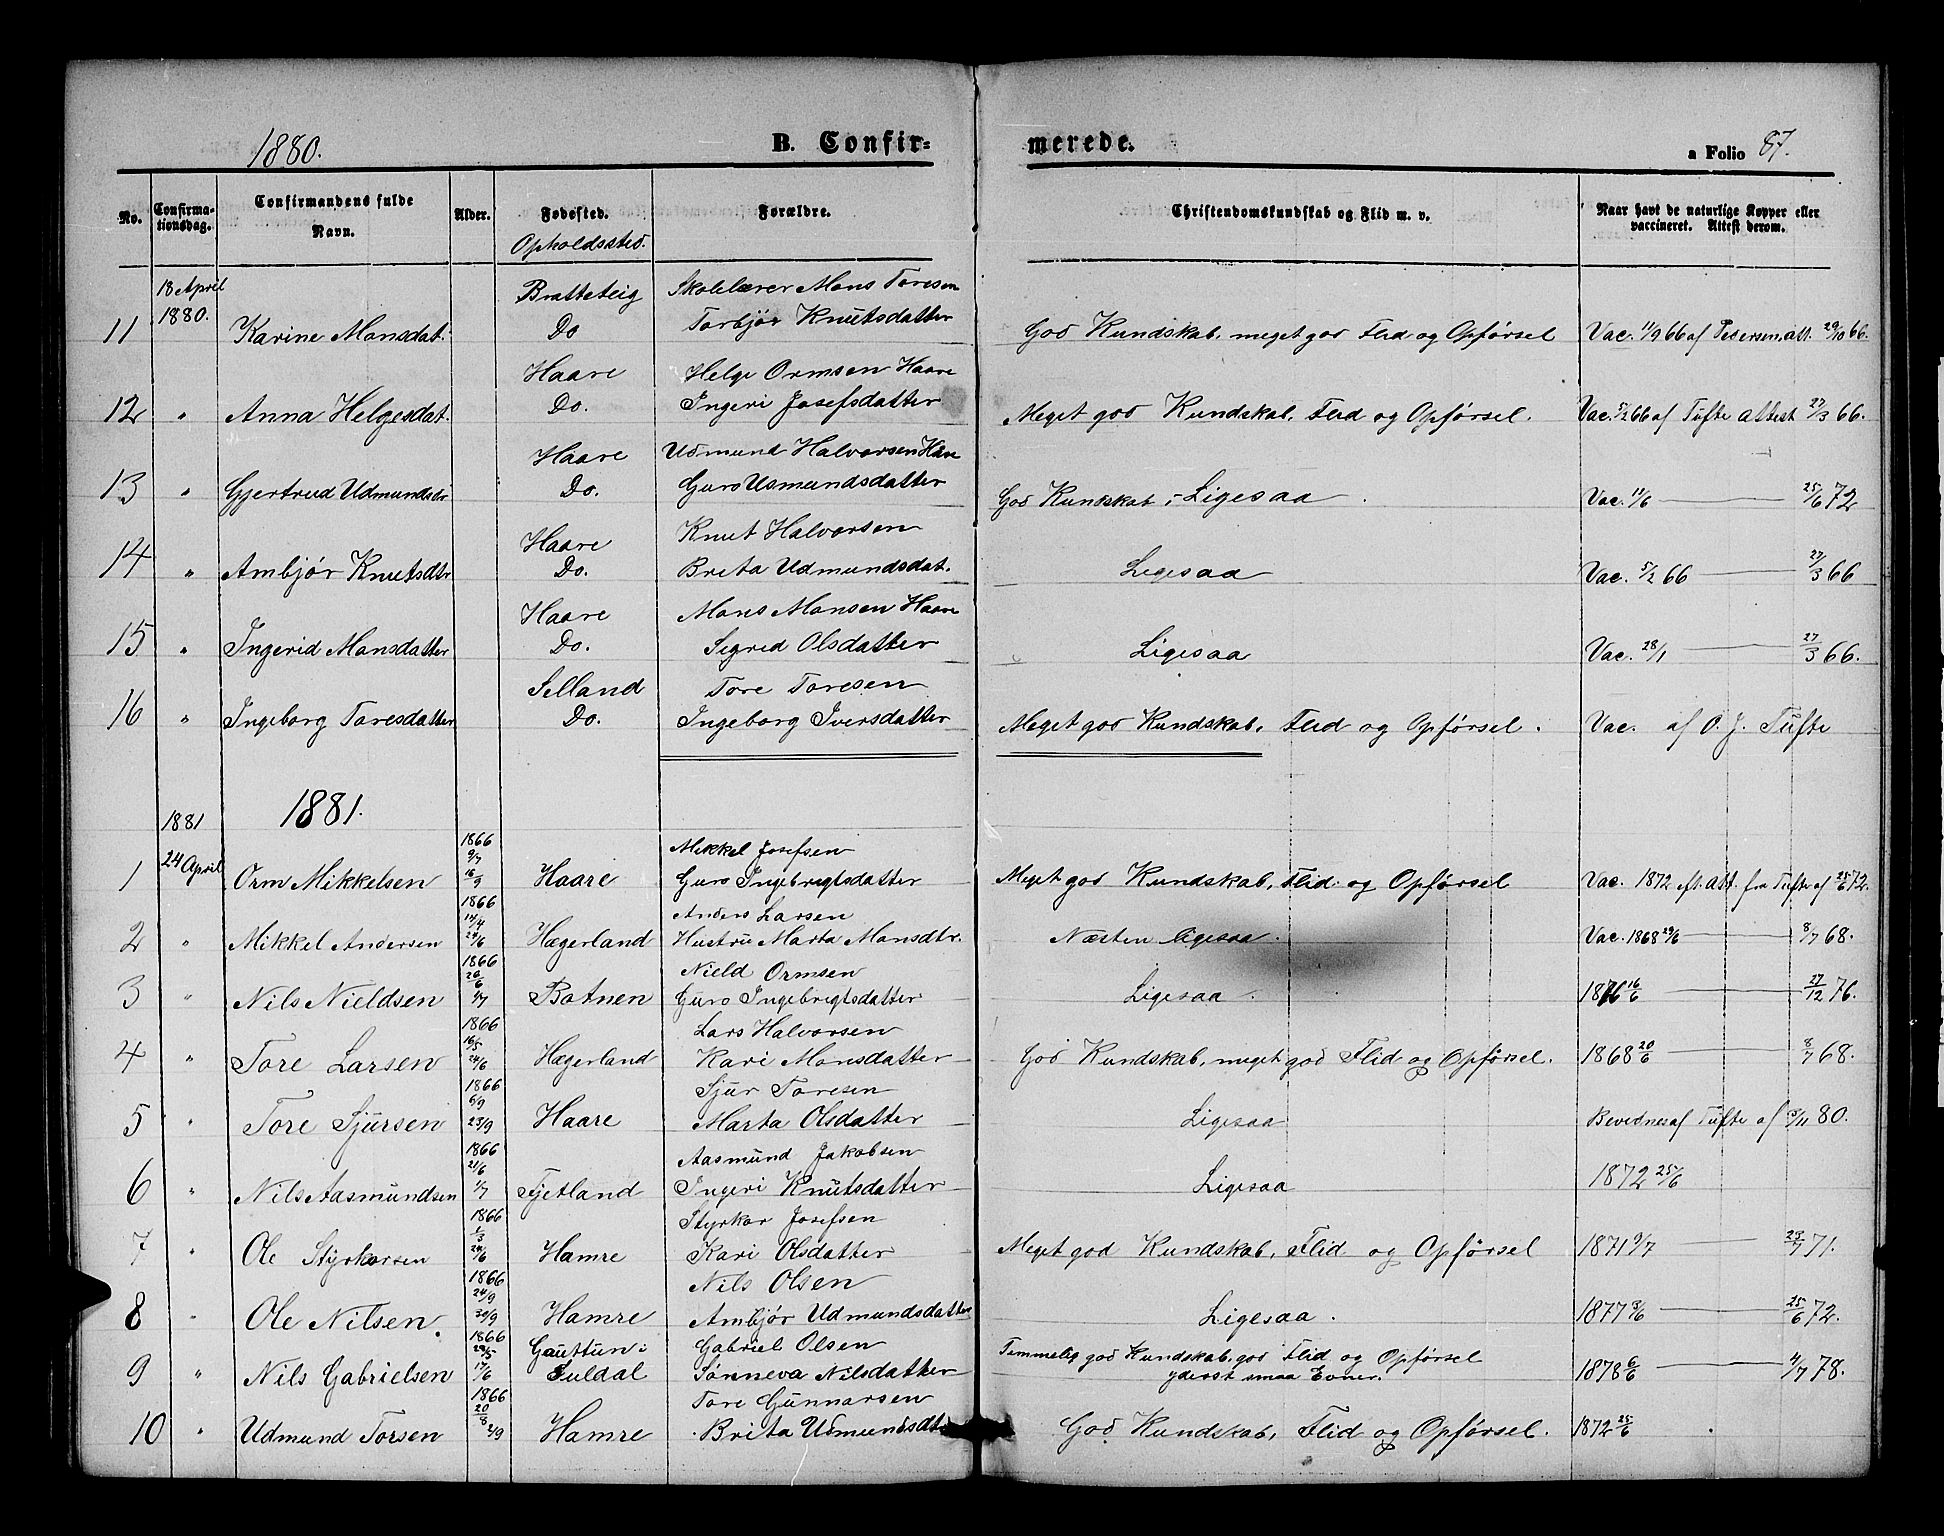 1880.
B. Confir-
merede.
a Folio 87.
No.
Confirma-
tionsdag.
Confirmandens fulde
Navn.
Alder.
Fødested.
Opholdssted.
Forældre.
Christendomskundskab og Flid m. v.
Naar havt de naturlige Kopper eller
vaccineret. Attest derom.
18 April Bratteteig Skolelærer Mons Toresen
1880. Torbjør Knutsdatter
11 Karine Monsdat. Do God Kundskab, meget god Flid og Opførsel Vac. 11/9 66 af Pedersen, att. 29/10 66.
Haare Helge Ormsen Haare
12 " Anna Helgesdat. Do. Ingeri Josefsdatter Meget god Kundskab, Flid og Opførsel. Vac. 5/2 66 af Tufte attest 27/3 66.
Haare Udmund Halvorsen Haare
13 " Gjertrud Udmundsdr Do. Guro Usmundsdatter God Kundskab, - Ligesaa. Vac. 11/6 — 25/6 72
Haare Knut Halvorsen
14 " Ambjør Knutsdtr Do. Brita Udmundsdat. Ligesaa Vac. 5/2 66 — 27/3 66
Haare Mons Monsen Haare
15 " Ingerid Monsdatter Do. Sigrid Olsdatter Ligesaa Vac. 28/1 — 27/3 66.
Selland Tore Toresen
16 " Ingeborg Toresdatter Do. Ingeborg Iversdatter Meget god Kundskab, Flid og Opførsel. Vac. af O. J. Tufte
1881.
1881 1866 Mikkel Josefsen
24 April 9/7
1 Orm Mikkelsen 16/9 Haare Guro Ingebrigtsdatter Meget god Kundskab, Flid og Opførsel Vac. 1872 eft. att. fra Tufte af 25/6 72.
1866 Anders Larsen
2 " Mikkel Andersen 14/4 24/6 Hægerland Hustru Marta Monsdtr. Næsten ligesaa. Vac. 1868 29/6 — 8/7 68.
1866 Nield Ormsen
3 " Nils Nieldsen 26/6 1/7 Botnen Guro Ingebrigtsdatter Ligesaa. 1876 16/6 — 27/12 76.
1866 Lars Halvorsen
4 " Tore Larsen 16/5 24/6 Hægerland Kari Monsdatter God Kundskab, meget god Flid og Opførsel. 1868 20/6 — 8/7 68.
1866 Sjur Toresen
5 " Tore Sjursen 6/9 23/9 Haare Marta Olsdatter Ligesaa Bevidnes af Tufte af 5/11 80.
1866 Aasmund Jakobsen
6 " Nils Aasmundsen 21/6 1/7 Fjetland Ingeri Knutsdatter Ligesaa 1872 25/6
1866 Styrkor Josefsen
7 " Ole Styrkorsen 1/3 24/6 Hamre Kari Olsdatter Meget god Kundskab, Flid og Opførsel 1871 9/7 — 23/7 71.
1866 Nils Olsen
8 " Ole Nilsen. 24/9 30/9 Hamre Ambjør Udmundsdatter Ligesaa. 1877 3/6 — 25/6 72.
1866 Gauttun i Gabriel Olsen Temmelig god Kundskab, god Flid og Opførsel
9 " Nils Gabrielsen 29/5 17/6 Suldal Sønneva Nilsdatter yderst smaa Evner. 1878 6/6 — 4/7 78.
1866 Tore Gunnarsen
10 " Udmund Torsen 20/8 2/9 Hamre Brita Udmundsdtr God Kundskab, Flid og Opførsel. 1872 25/6